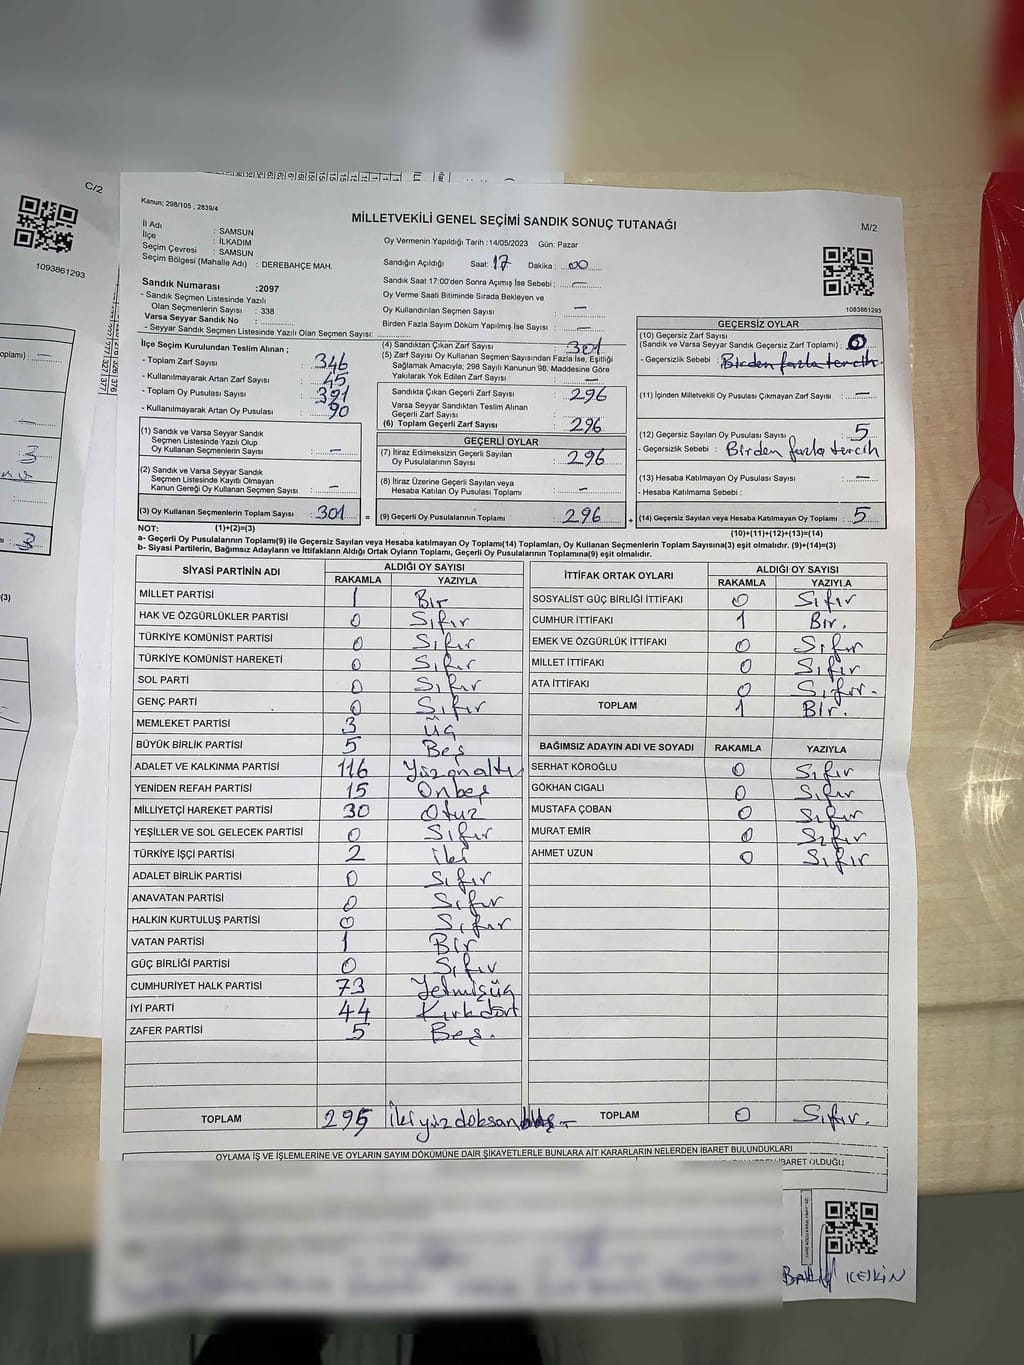 C/2
1093861293
Kanun; 298/105 , 2839/4
MİLLETVEKİLİ GENEL SEÇİMİ SANDIK SONUÇ TUTANAĞI
M/2
İl Adı : SAMSUN
İlçe : İLKADIM
Seçim Çevresi : SAMSUN
Seçim Bölgesi (Mahalle Adı) : DEREBAHÇE MAH.
Oy Vermenin Yapıldığı Tarih :14/05/2023 Gün: Pazar
Sandığın Açıldığı Saat: 17 Dakika : 00
Sandık Saat 17:00'den Sonra Açımış İse Sebebi : —
Oy Verme Saati Bitiminde Sırada Bekleyen ve
Oy Kullandırılan Seçmen Sayısı : —
Birden Fazla Sayım Döküm Yapılmış İse Sayısı : —
1083861293
Sandık Numarası :2097
- Sandık Seçmen Listesinde Yazılı
Olan Seçmenlerin Sayısı : 338
Varsa Seyyar Sandık No :
- Seyyar Sandık Seçmen Listesinde Yazılı Olan Seçmen Sayısı:
İlçe Seçim Kurulundan Teslim Alınan ;
- Toplam Zarf Sayısı : 346
- Kullanılmayarak Artan Zarf Sayısı : 45
- Toplam Oy Pusulası Sayısı : 391
- Kullanılmayarak Artan Oy Pusulası : 90
(1) Sandık ve Varsa Seyyar Sandık
Seçmen Listesinde Yazılı Olup
Oy Kullanan Seçmenlerin Sayısı : —
(2) Sandık ve Varsa Seyyar Sandık
Seçmen Listesinde Kayıtlı Olmayan
Kanun Gereği Oy Kullanan Seçmen Sayısı : —
(3) Oy Kullanan Seçmenlerin Toplam Sayısı : 301 =
(4) Sandıktan Çıkan Zarf Sayısı : 301
(5) Zarf Sayısı Oy Kullanan Seçmen Sayısından Fazla İse, Eşitliği
Sağlamak Amacıyla; 298 Sayılı Kanunun 98. Maddesine Göre
Yakılarak Yok Edilen Zarf Sayısı : —
Sandıkta Çıkan Geçerli Zarf Sayısı : 296
Varsa Seyyar Sandıktan Teslim Alınan
Geçerli Zarf Sayısı :
(6) Toplam Geçerli Zarf Sayısı : 296
GEÇERLİ OYLAR
(7) İtiraz Edilmeksizin Geçerli Sayılan
Oy Pusulalarının Sayısı : 296
(8) İtiraz Üzerine Geçerli Sayılan veya
Hesaba Katılan Oy Pusulası Toplamı : —
(9) Geçerli Oy Pusulalarının Toplamı : 296 +
GEÇERSİZ OYLAR
(10) Geçersiz Zarf Sayısı
(Sandık ve Varsa Seyyar Sandık Geçersiz Zarf Toplamı) : 0
- Geçersizlik Sebebi : Birden fazla tercih
(11) İçinden Milletvekili Oy Pusulası Çıkmayan Zarf Sayısı : —
(12) Geçersiz Sayılan Oy Pusulası Sayısı : 5
- Geçersizlik Sebebi : Birden fazla tercih
(13) Hesaba Katılmayan Oy Pusulası Sayısı : —
- Hesaba Katılmama Sebebi :
(14) Geçersiz Sayılan veya Hesaba Katılmayan Oy Toplamı : 5
NOT: (1)+(2)=(3)
(10)+(11)+(12)+(13)=(14)
a- Geçerli Oy Pusulaları Toplamı(9) ile Geçersiz Sayılan veya Hesaba Katılmayan Oy Toplamı(14) Toplamları, Oy Kullanan Seçmenlerin Toplam Sayısına(3) eşit olmalıdır. (9)+(14)=(3)
b- Siyasi Partilerin, Bağımsız Adayların ve İttifakların Aldığı Ortak Oyların Toplamı, Geçerli Oy Pusulalarının Toplamına(9) eşit olmalıdır.
SİYASİ PARTİNİN ADI ALDIĞI OY SAYISI
RAKAMLA YAZIYLA
MİLLET PARTİSİ 1 Bir
HAK VE ÖZGÜRLÜKLER PARTİSİ 0 Sıfır
TÜRKİYE KOMÜNİST PARTİSİ 0 Sıfır
TÜRKİYE KOMÜNİST HAREKETİ 0 Sıfır
SOL PARTİ 0 Sıfır
GENÇ PARTİ 0 Sıfır
MEMLEKET PARTİSİ 3 Üç
BÜYÜK BİRLİK PARTİSİ 5 Beş
ADALET VE KALKINMA PARTİSİ 116 Yüzonaltı
YENİDEN REFAH PARTİSİ 15 Onbeş
MİLLİYETÇİ HAREKET PARTİSİ 30 Otuz
YEŞİLLER VE SOL GELECEK PARTİSİ 0 Sıfır
TÜRKİYE İŞÇİ PARTİSİ 2 İki
ADALET BİRLİK PARTİSİ 0 Sıfır
ANAVATAN PARTİSİ 0 Sıfır
HALKIN KURTULUŞ PARTİSİ 0 Sıfır
VATAN PARTİSİ 1 Bir
GÜÇ BİRLİĞİ PARTİSİ 0 Sıfır
CUMHURİYET HALK PARTİSİ 73 Yetmişüç
İYİ PARTİ 44 Kırkdört
ZAFER PARTİSİ 5 Beş.
TOPLAM 295 İkiyüzdoksan
İTTİFAK ORTAK OYLARI ALDIĞI OY SAYISI
RAKAMLA YAZIYLA
SOSYALİST GÜÇ BİRLİĞİ İTTİFAKI 0 Sıfır
CUMHUR İTTİFAKI 1 Bir.
EMEK VE ÖZGÜRLÜK İTTİFAKI 0 Sıfır
MİLLET İTTİFAKI 0 Sıfır
ATA İTTİFAKI 0 Sıfır.
TOPLAM 1 Bir.
BAĞIMSIZ ADAYIN ADI VE SOYADI RAKAMLA YAZIYLA
SERHAT KÖROĞLU 0 Sıfır
GÖKHAN CIGALI 0 Sıfır
MUSTAFA ÇOBAN 0 Sıfır
MURAT EMİR 0 Sıfır
AHMET UZUN 0 Sıfır
TOPLAM 0 Sıfır.
OYLAMA İŞ VE İŞLEMLERİNE VE OYLARIN SAYIM DÖKÜMÜNE DAİR ŞİKAYETLERLE BUNLARA AİT KARARLARIN NELERDEN İBARET BULUNDUKLARI
İBARET OLDUĞU
KESKİN